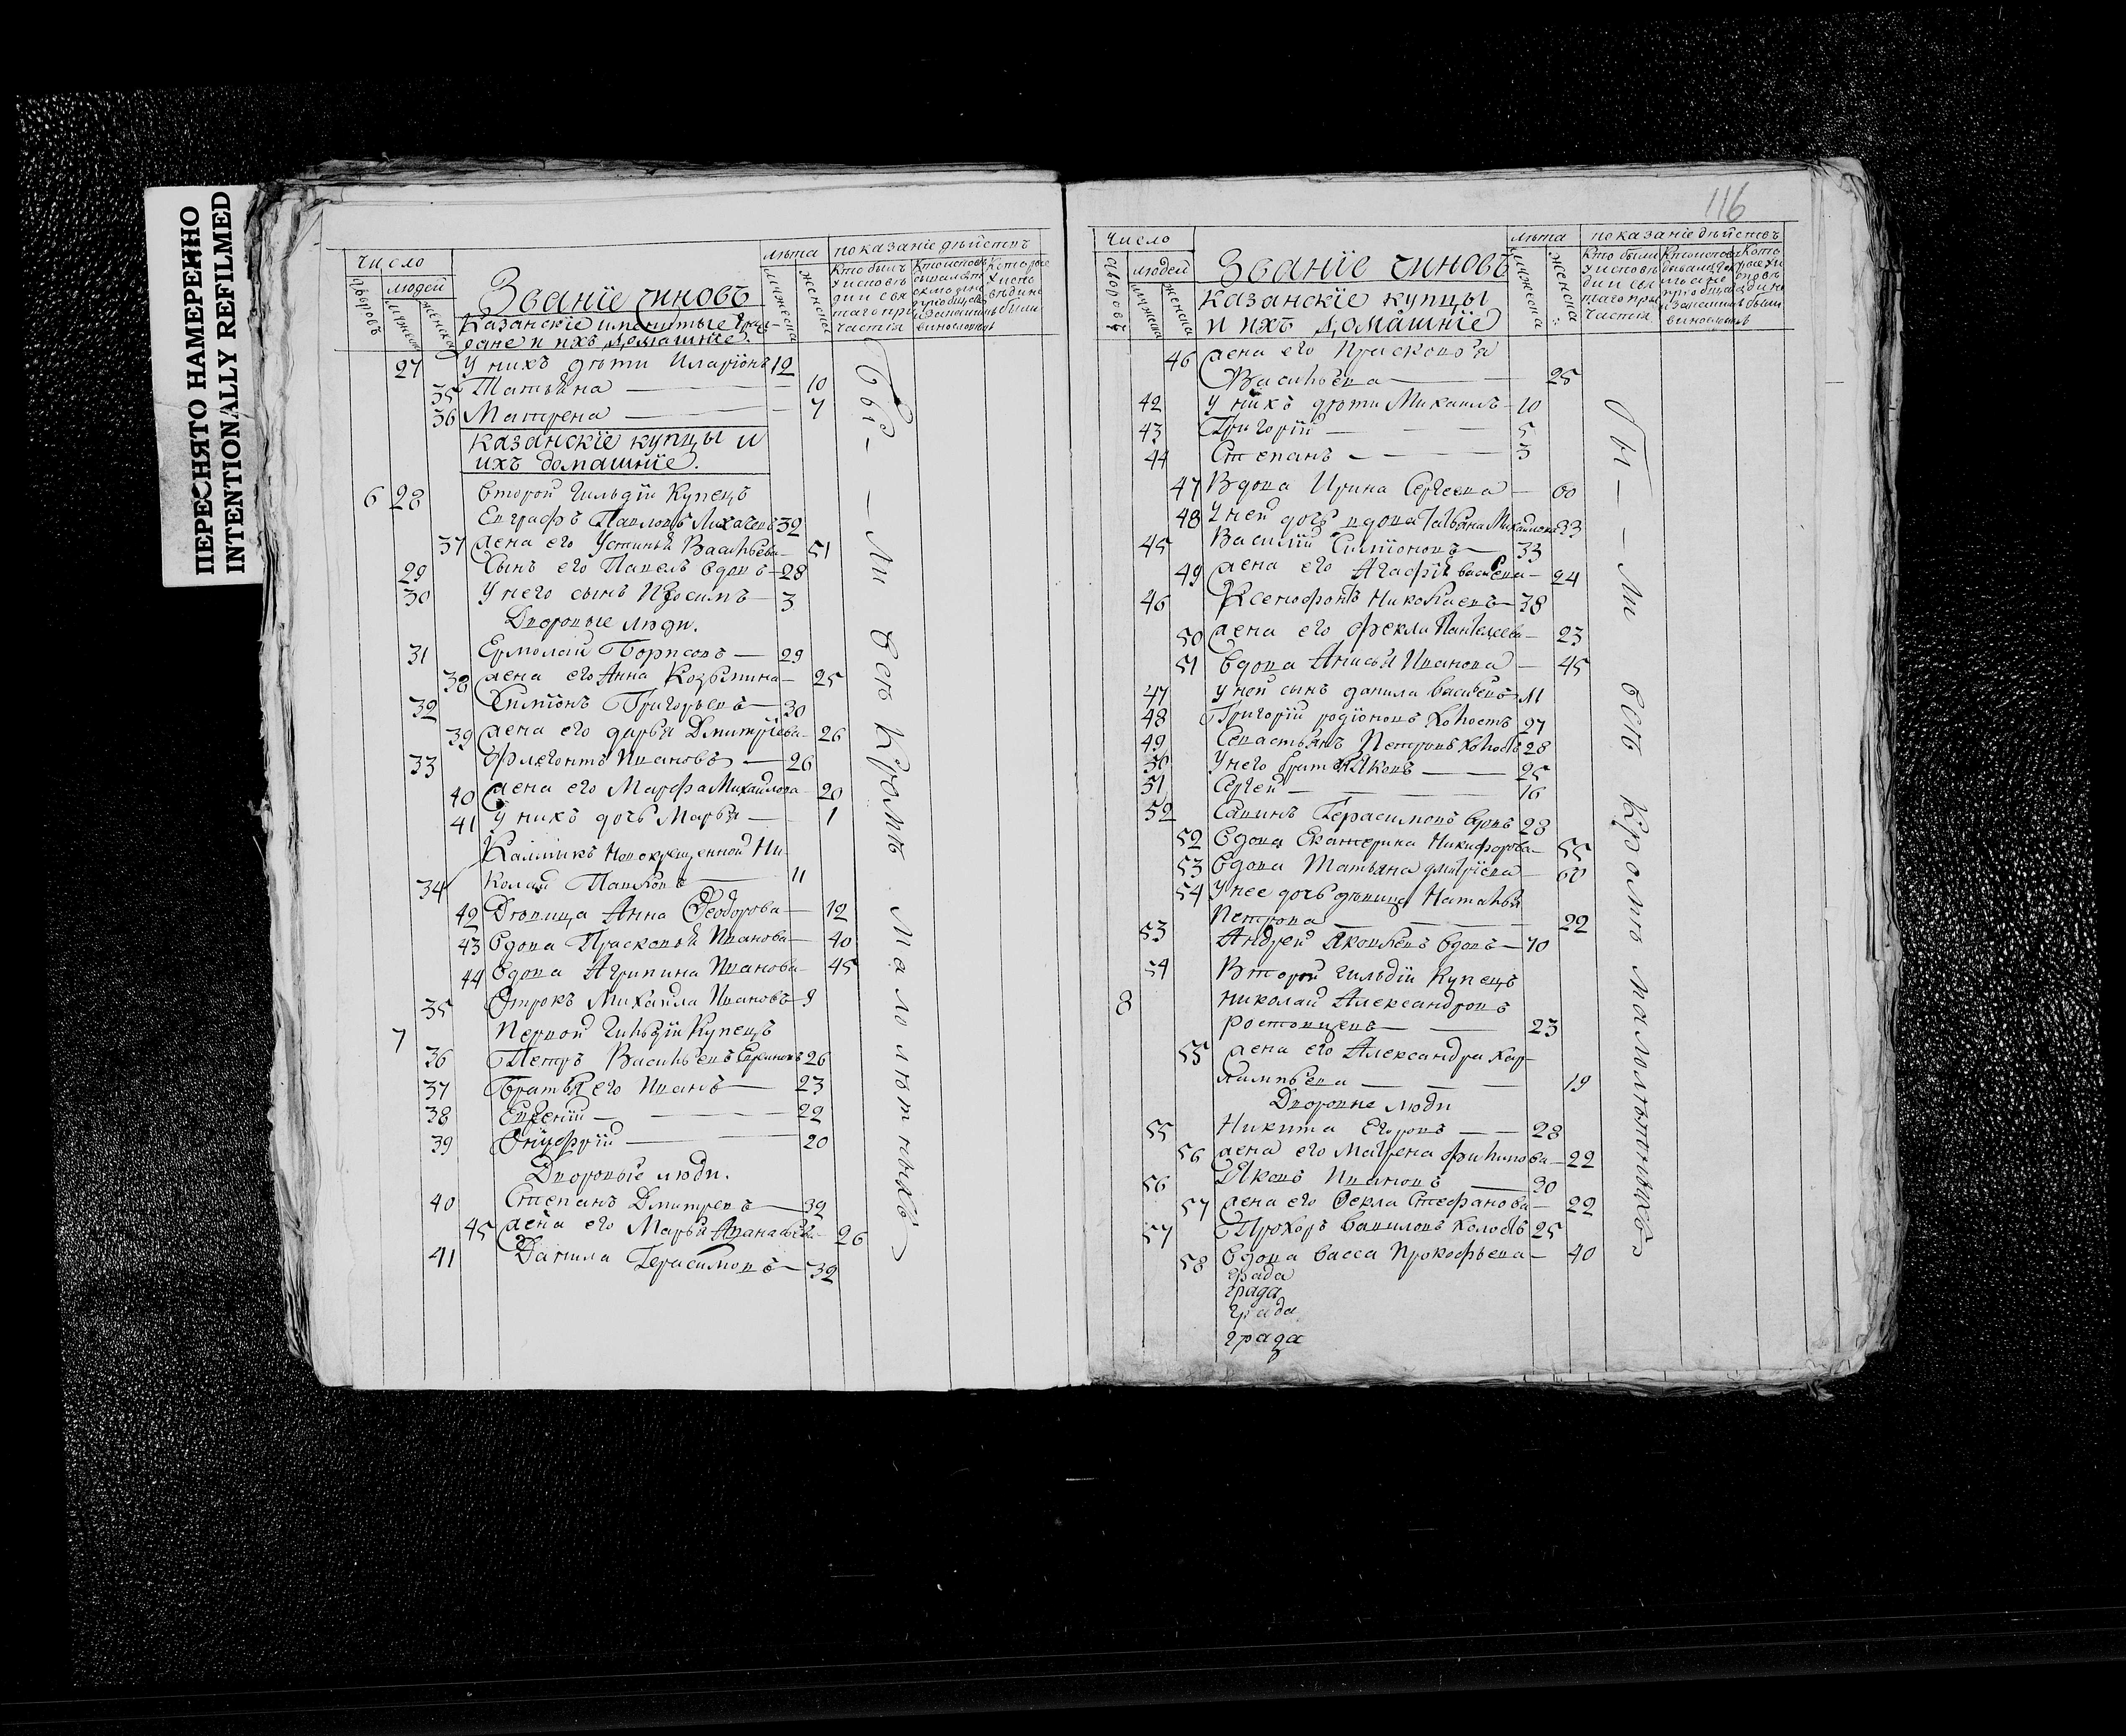 ПЕРЕСНЯТО НАМЕРЕННО
INTENTIONALLY REFILMED
число
людей
дворовъ
мужеска
женска
Званїе чиновъ
Казанскїе имянитые граж-
дане и ихъ домашнїе.
лѣта
мужеска
женска
показанїе дѣйствъ
27 У нихъ дѣти Иларїонъ 12
35 Татьяна 10
36 Матрена 7
казанскїе купцы и
ихъ домашнїе.
6 28 Второй гильдїи Купецъ
Евграфъ Павловъ Лихачевъ 32
37 жена его Устинья Васильева 51
29 Сынъ его Павелъ вдовъ 28
30 У него сынъ Изосимъ 3
Дворовые люди.
31 Ермолай Борисовъ 29
38 жена его Анна Козьмина 25
32 Симїонъ Григорьевъ 30
39 жена его дарья Дмитрїева 26
33 Флегонтъ Ивановъ 26
40 жена его Марфа Михайлова 20
41 У нихъ дочь Марья 1
Калмыкъ Новокрещенной Ни-
34 колай Павловъ 11
42 Дѣвица Анна Феодорова 12
43 Вдова Прасковья Иванова 40
44 Вдова Агрипина Иванова 45
35 Отрокъ Михайла Ивановъ 9
7 Первой Гильдїи Купецъ
36 Петръ Васильевъ 26
37 Братья его Иванъ 23
38 Евгенїй 22
39 Онуфрїй 20
Дворовые люди.
40 Степанъ Дмитревъ 32
45 жена его Марья Афанасьева 26
41 Данила Герасимовъ 32
Бы-ли всѣ Кромѣ Малолѣтныхъ
116
число
людей
дворовъ
мужеска
женска
Званїе чиновъ
казанскїе купцы
и ихъ домашнїе
лѣта
мужеска
женска
показанїе дѣйствъ
46 жена его Прасковья
Васильева 25
42 У нихъ дѣти Михаилъ 10
43 Григорїй 5
44 Степанъ 3
47 Вдова Ирина Сергеева 60
48 У ней дочь вдова Татьяна Михайлова 33
45 Василїй Симїоновъ 33
49 жена его Агафїя васильева 24
46 Ксенофонтъ Николаевъ 38
50 жена его Фекла Пантелеева 23
51 вдова Анисья Иванова 45
47 у ней сынъ данила васильевъ 11
48 Григорїй родїоновъ холостъ 27
49 Севастьянъ Петровъ холостъ 28
50 У него братья Яковъ 25
51 Сергей 16
52 Савинъ Герасимовъ вдовъ 28
52 Вдова Екатерина Никифорова 55
53 Вдова Татьяна дмитрїева 60
54 У нее дочь дѣвица Наталья
Петрова 22
53 Андрей Яковлевъ вдовъ 70
54 Второй гильдїи Купецъ
8 Николай Александровъ
ростовцевъ 23
55 жена его Александра Хар-
лампьева 19
Дворовые люди
55 Никита Егоровъ 28
56 жена его Матрена филипова 22
56 Яковъ Ивановъ 30
57 жена его Фекла Стефанова 22
57 Прохоръ Вавиловъ Холостъ 25
58 Вдова васса Прокофьева 40
града
града
града
града
бы-ли всѣ Кромѣ малолѣтныхъ